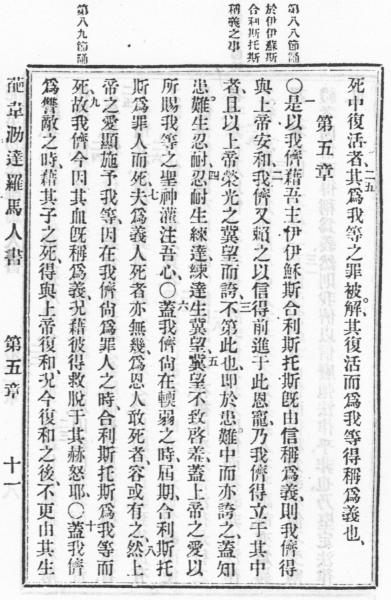 第八八節誦
於伊伊穌斯
合利斯托斯
稱義之事
第八九節誦
死中復活者、其爲我等之罪被解、其復活而爲我等得稱爲義也、
二五
第五章
一
○是以我儕藉吾主伊伊穌斯合利斯托斯、既由信稱爲義、則我儕得
與上帝安和、我儕又賴之以信得前進于此恩寵、乃我儕得立于其中
二
者、且以上帝榮光之冀望而誇、不第此也、卽於患難中而亦誇之、蓋知
三
患難生忍耐、忍耐生練達、練達生冀望、冀望不致啓羞、蓋上帝之愛以
四
五
所賜我等之聖神灌注吾心、○蓋我儕尙在輭弱之時、屆期、合利斯托
六
斯爲罪人而死、夫爲義人死者亦無幾、爲恩人敢死者、容或有之、然上
七
八
帝之愛顯施予我等、因在我儕尙爲罪人之時、合利斯托斯爲我等而
死、故我儕今因其血既稱爲義、況藉彼得救脫于其赫怒耶、○蓋我儕
九
十
爲讐敵之時、藉其子之死、得與上帝復和、況今復和之後、不更由其生
葩韋泐達羅馬人書　第五章　十一